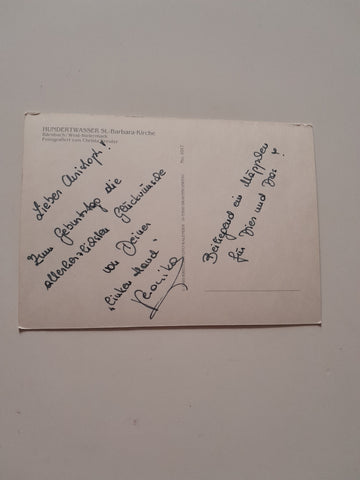 HUNDERTWASSER St.-Barbara-Kirche
Bärnbach/West-Steiermark
Fotografiert von
Lieber Christoph!
Zum Geburtstag die
allerherzlichsten Glückwünsche
von Deiner
linken Hand,
Veronika
Beiliegend ein Mäppchen
für Dies und Das!